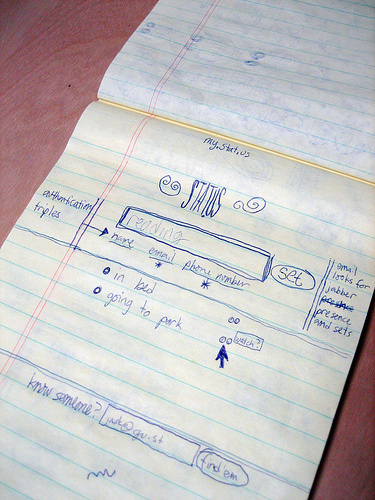 my.stat.us
STATUS
authentication
triples
reading
name email phone number
set
in bed
going to park
watch?
email
looks for
jabber
presence
and sets
know someone?
find'em